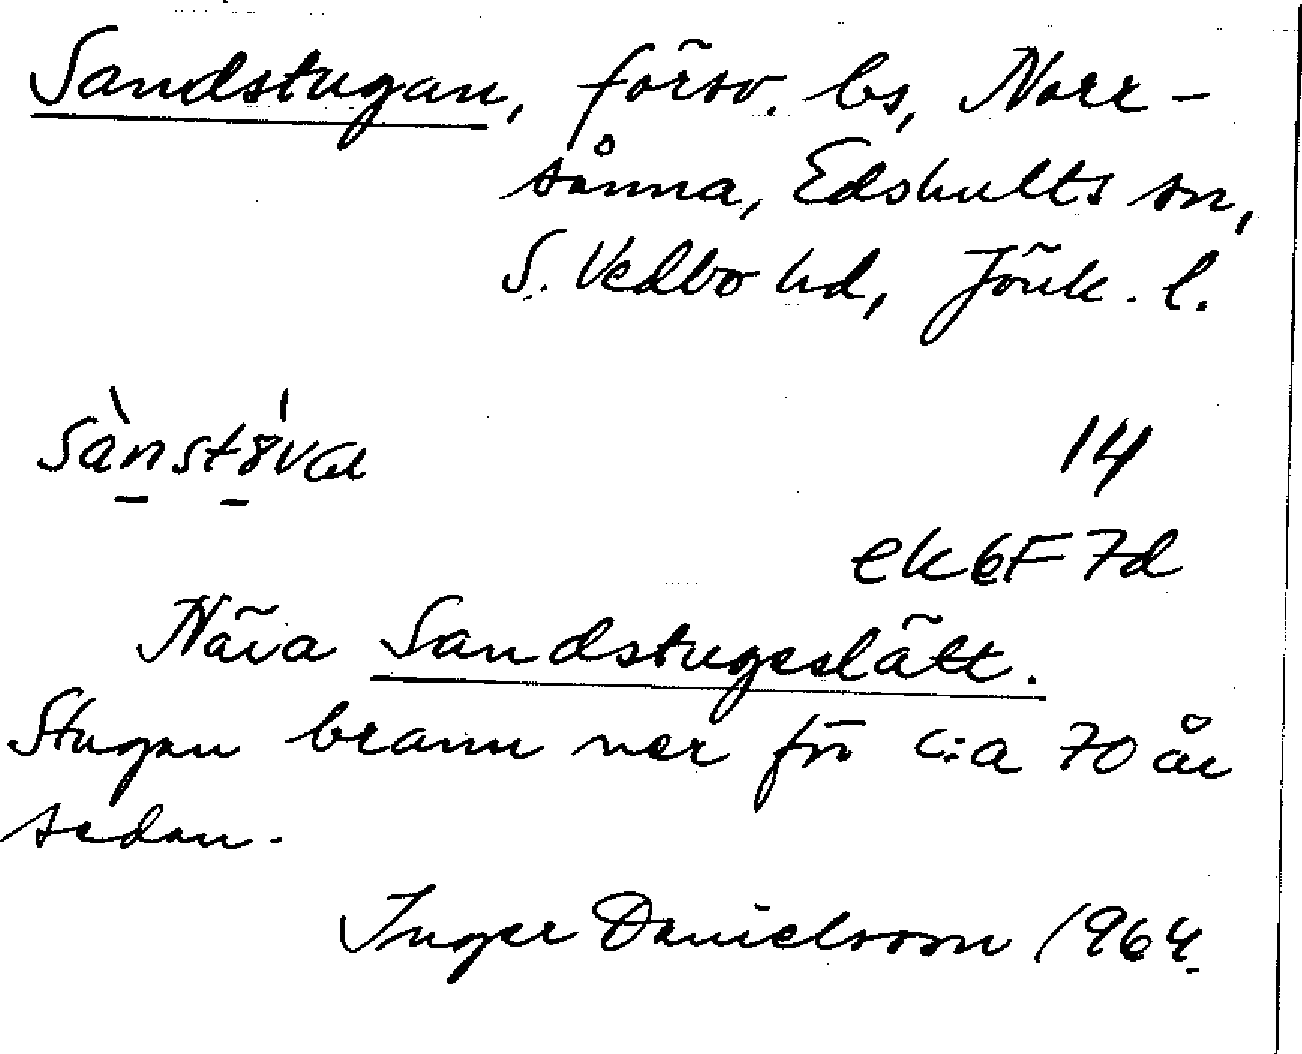 Sandstugan, försv. bs, Norr-
sånna, Edshults sn,
S. Vedbo hd, Jönk. l.
sànstȣ́va
14
ek 6F 7d
Nära Sandstugeslätt.
Stugan brann ner för c:a 70 år
sedan.
Inger Danielsson 1964.